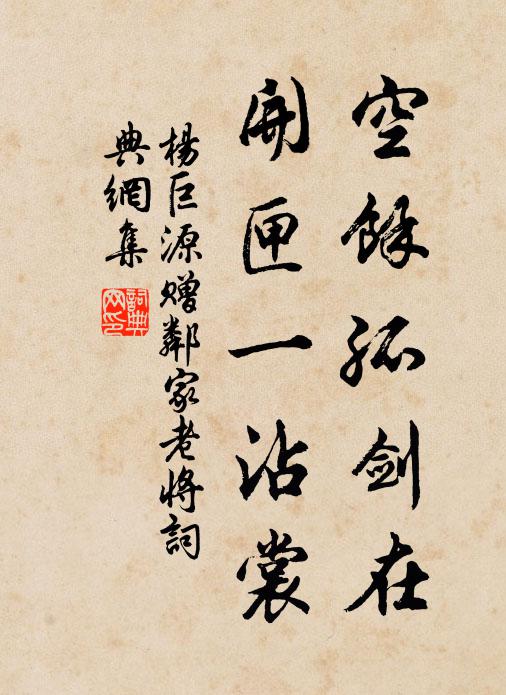 空餘孤劍在
開匣一沾裳
楊巨源贈鄰家老將詞
典網集
詞典
网印